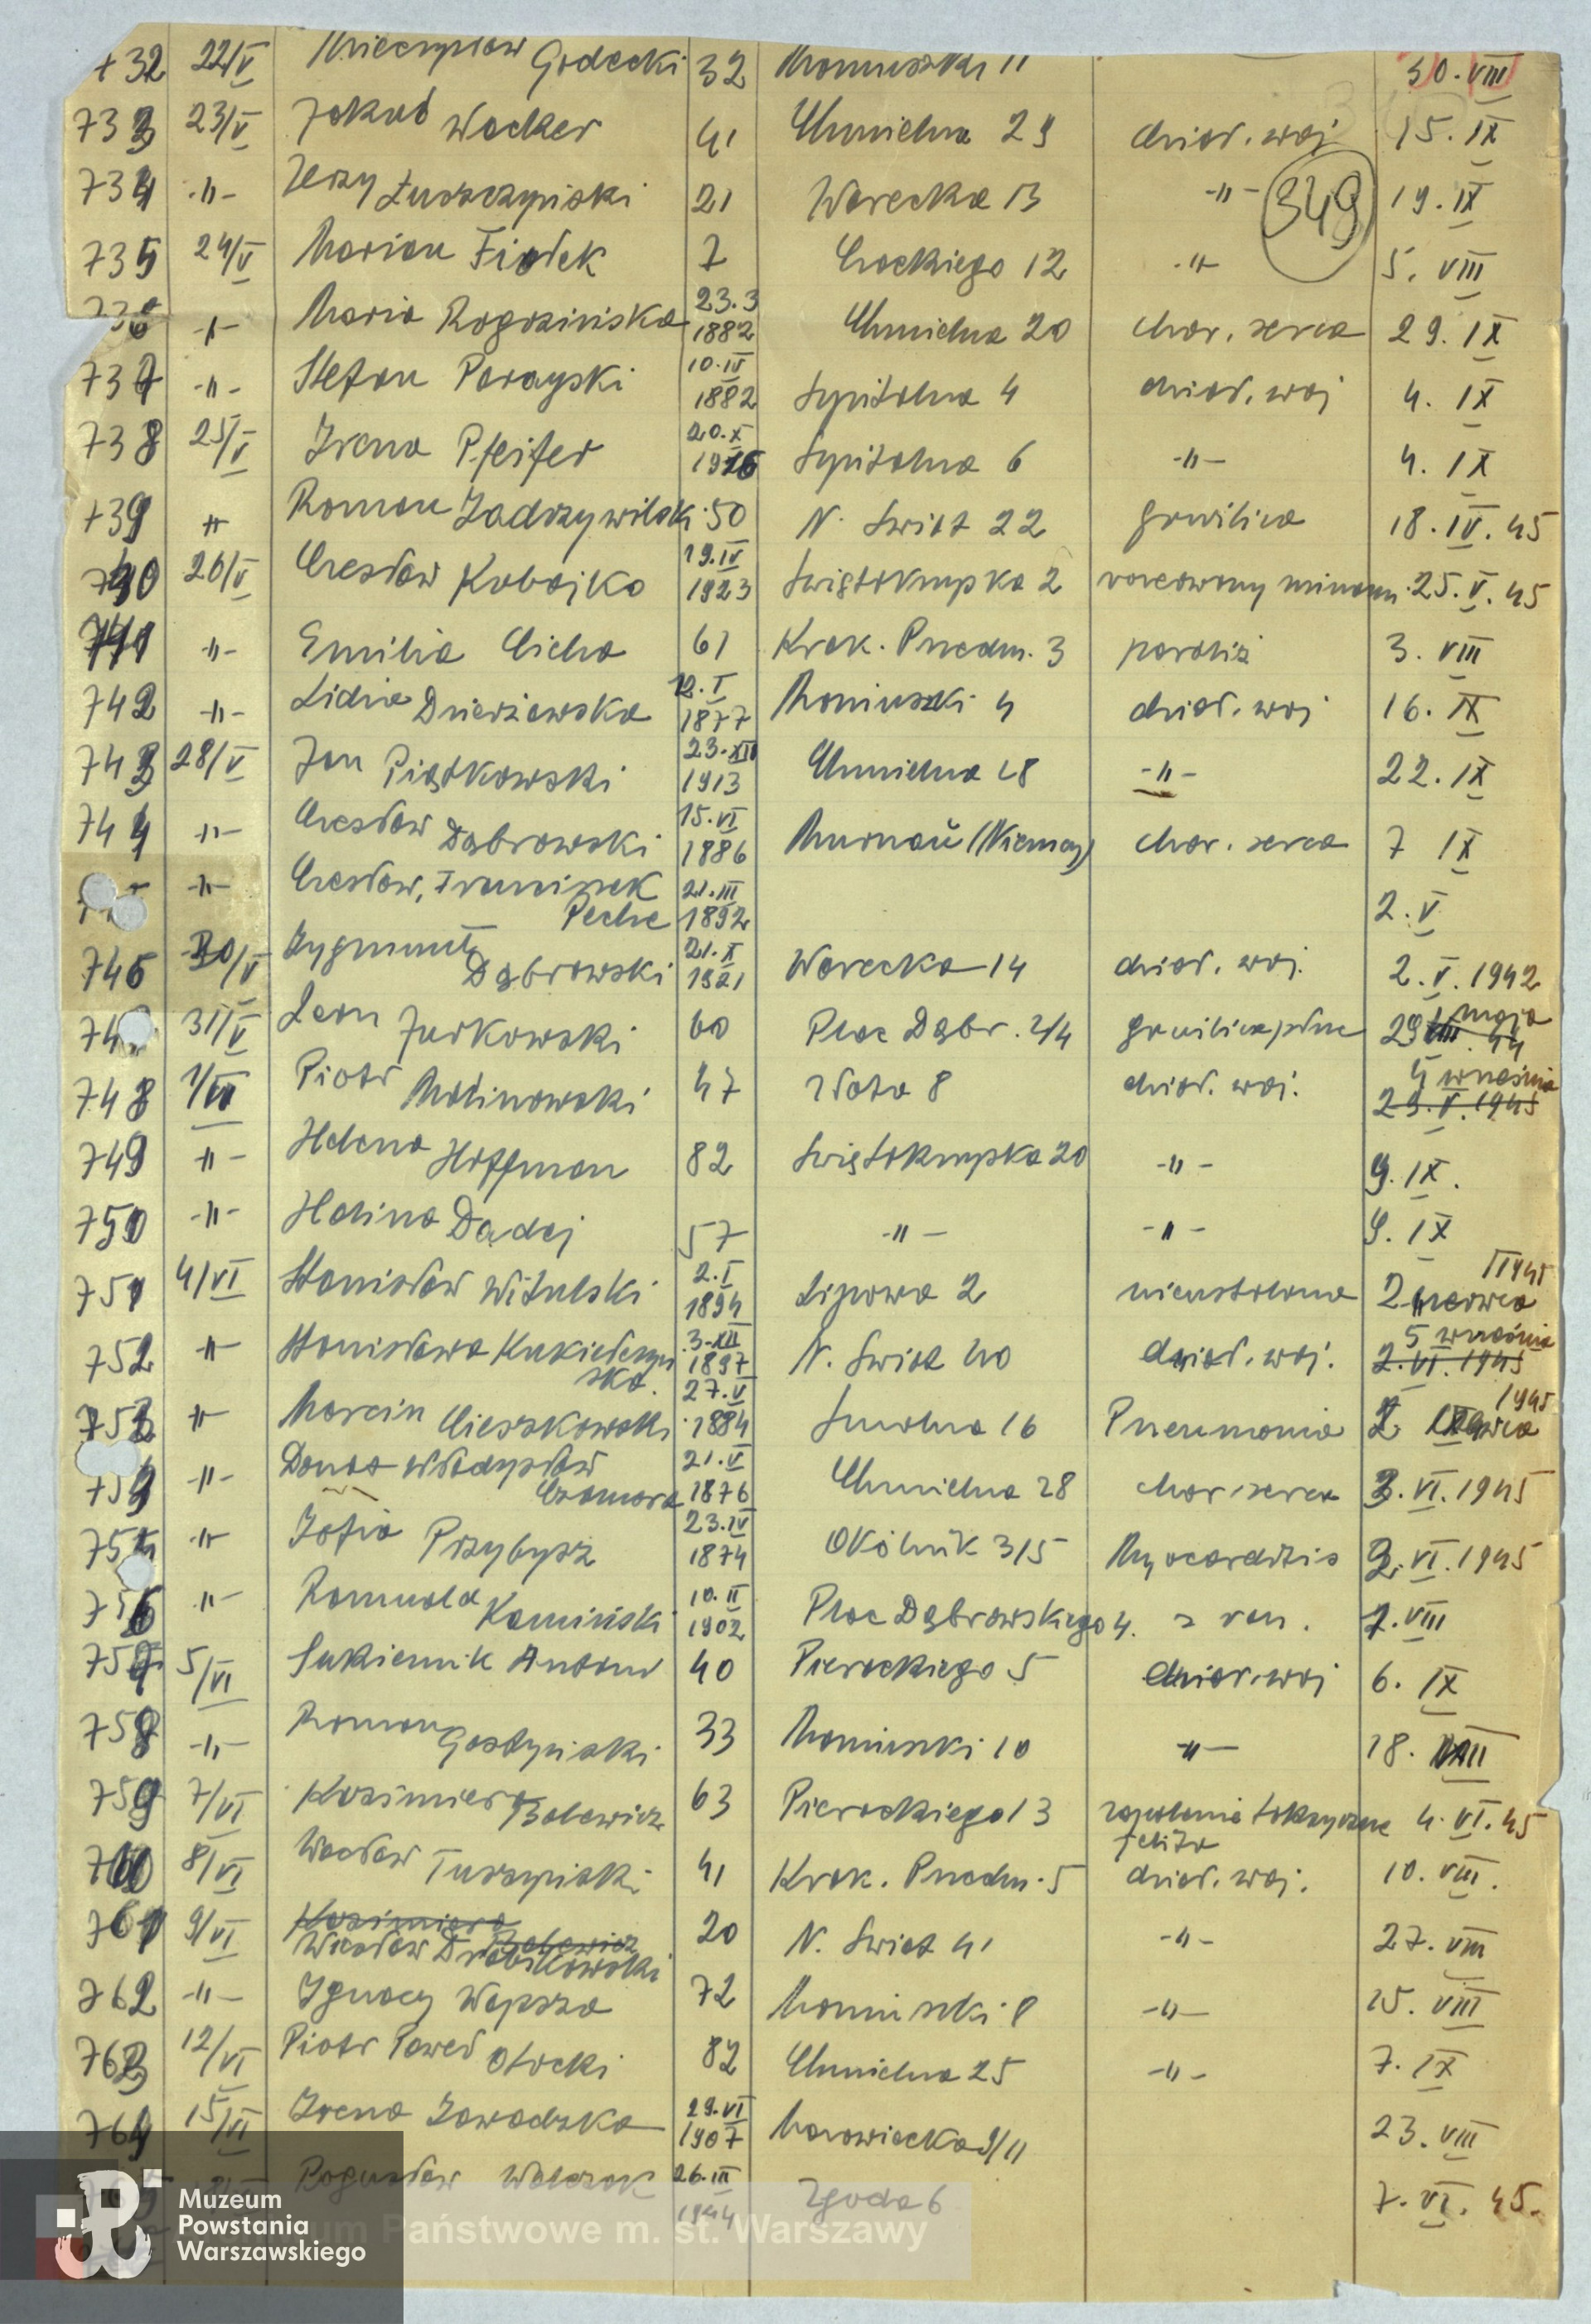 732 22/V Mieczysław Godecki 32 Moniuszki 11 30. VIII
733 23/V Jakub Wacker 41 Chmielna 29 dział. woj 15. IX
734 -"- Jerzy Łuszczyński 21 Warecka 13 -"- 349 19. IX
735 24/V Marian Fiołek 7 Czackiego 12 -"- 5. VIII
736 -"- Maria Rogozińska 23.3 1882 Chmielna 20 chor. serca 29. IX
737 -"- Stefan Parayski 10.IV 1882 Szpitalna 4 dział. woj 4. IX
738 25/V Irena Pfeifer 20.X 1926 Szpitalna 6 -"- 4. IX
739 -"- Roman Zadrzywilski 50 N. Świat 22 gruźlica 18. IV. 45
740 26/V Czesław Kobojko 19.IV 1923 Świętokrzyska 2 rozerwany minam. 25. V. 45
741 -"- Emilia Cicha 61 Krak. Przedm. 3 paraliż 3. VIII
742 -"- Lidia Dzierżawska 12.I 1877 Moniuszki 4 dział. woj 16. IX
743 28/V Jan Piątkowski 23.XII 1913 Chmielna 28 -"- 22. IX
744 -"- Czesław Dąbrowski 15.VI 1886 Murnau (Niemcy) chor. serca 7 IX
-"- Czesław, Franciszek Peche 21.III 1892 2. V
746 30/V Zygmunt Dąbrowski 21.X 1921 Warecka 14 dział. woj. 2. V. 1942
74 31/V Leon Jurkowski 60 Plac Dąbr. 2/4 gruźlica płuc 29 VIII. 44 maja
748 1/VI Piotr Malinowski 47 Złota 8 dział. woj. 4 września
29. V. 1945
749 -"- Helena Hoffman 82 Świętokrzyska 20 -"- 9. IX.
750 -"- Halina Dadej 57 -"- -"- 9. IX
751 4/VI Stanisław Witulski 2.I 1894 Lipowa 2 nieustalona 2 czerwca 1945
752 -"- Stanisława Kukiełczyńska 3.XII 1897 N. Świat 40 dział. woj. 5 września
2. VI. 1945
753 -"- Marcin Cieszkowski 27.V 1884 Smolna 16 Pneumonia 2 czerwca 1945
754 -"- Donat Władysław Czamara 21.V 1876 Chmielna 28 chor. serca 3. VI. 1945
755 -"- Zofia Przybysz 23.IV 1874 Okólnik 3/5 Myocarditis 3. VI. 1945
756 -"- Romuald Kamiński 10.II 1902 Plac Dąbrowskiego 4. z ran. 7. VIII
757 5/VI Sukiennik Antoni 40 Pierackiego 5 dział. woj 6. IX
758 -"- Roman Gostyński 33 Moniuszki 10 -"- 18. VIII
759 7/VI Kazimiera Balewicz 63 Pierackiego 13 zapalenie toksyczne jelita 4. VI. 45
760 8/VI Wacław Turzyński 41 Krak. Przedm. 5 dział. woj. 10. VIII.
761 9/VI Kazimiera Balewicz
Wiesław Drabikowski 20 N. Świat 41 -"- 27. VIII
762 -"- Ignacy Wapsza 72 Moniuszki 8 -"- 15. VIII
763 12/VI Piotr Paweł Otocki 82 Chmielna 25 -"- 7. IX
764 15/VI Irena Zawadzka 29.VI 1907 Mazowiecka 9/11 23. VIII
Bogusław Walczak 26.III 1944 Zgoda 6 7. VI. 45.
Państwowe m. st. Warszawy
Muzeum
Powstania
Warszawskiego